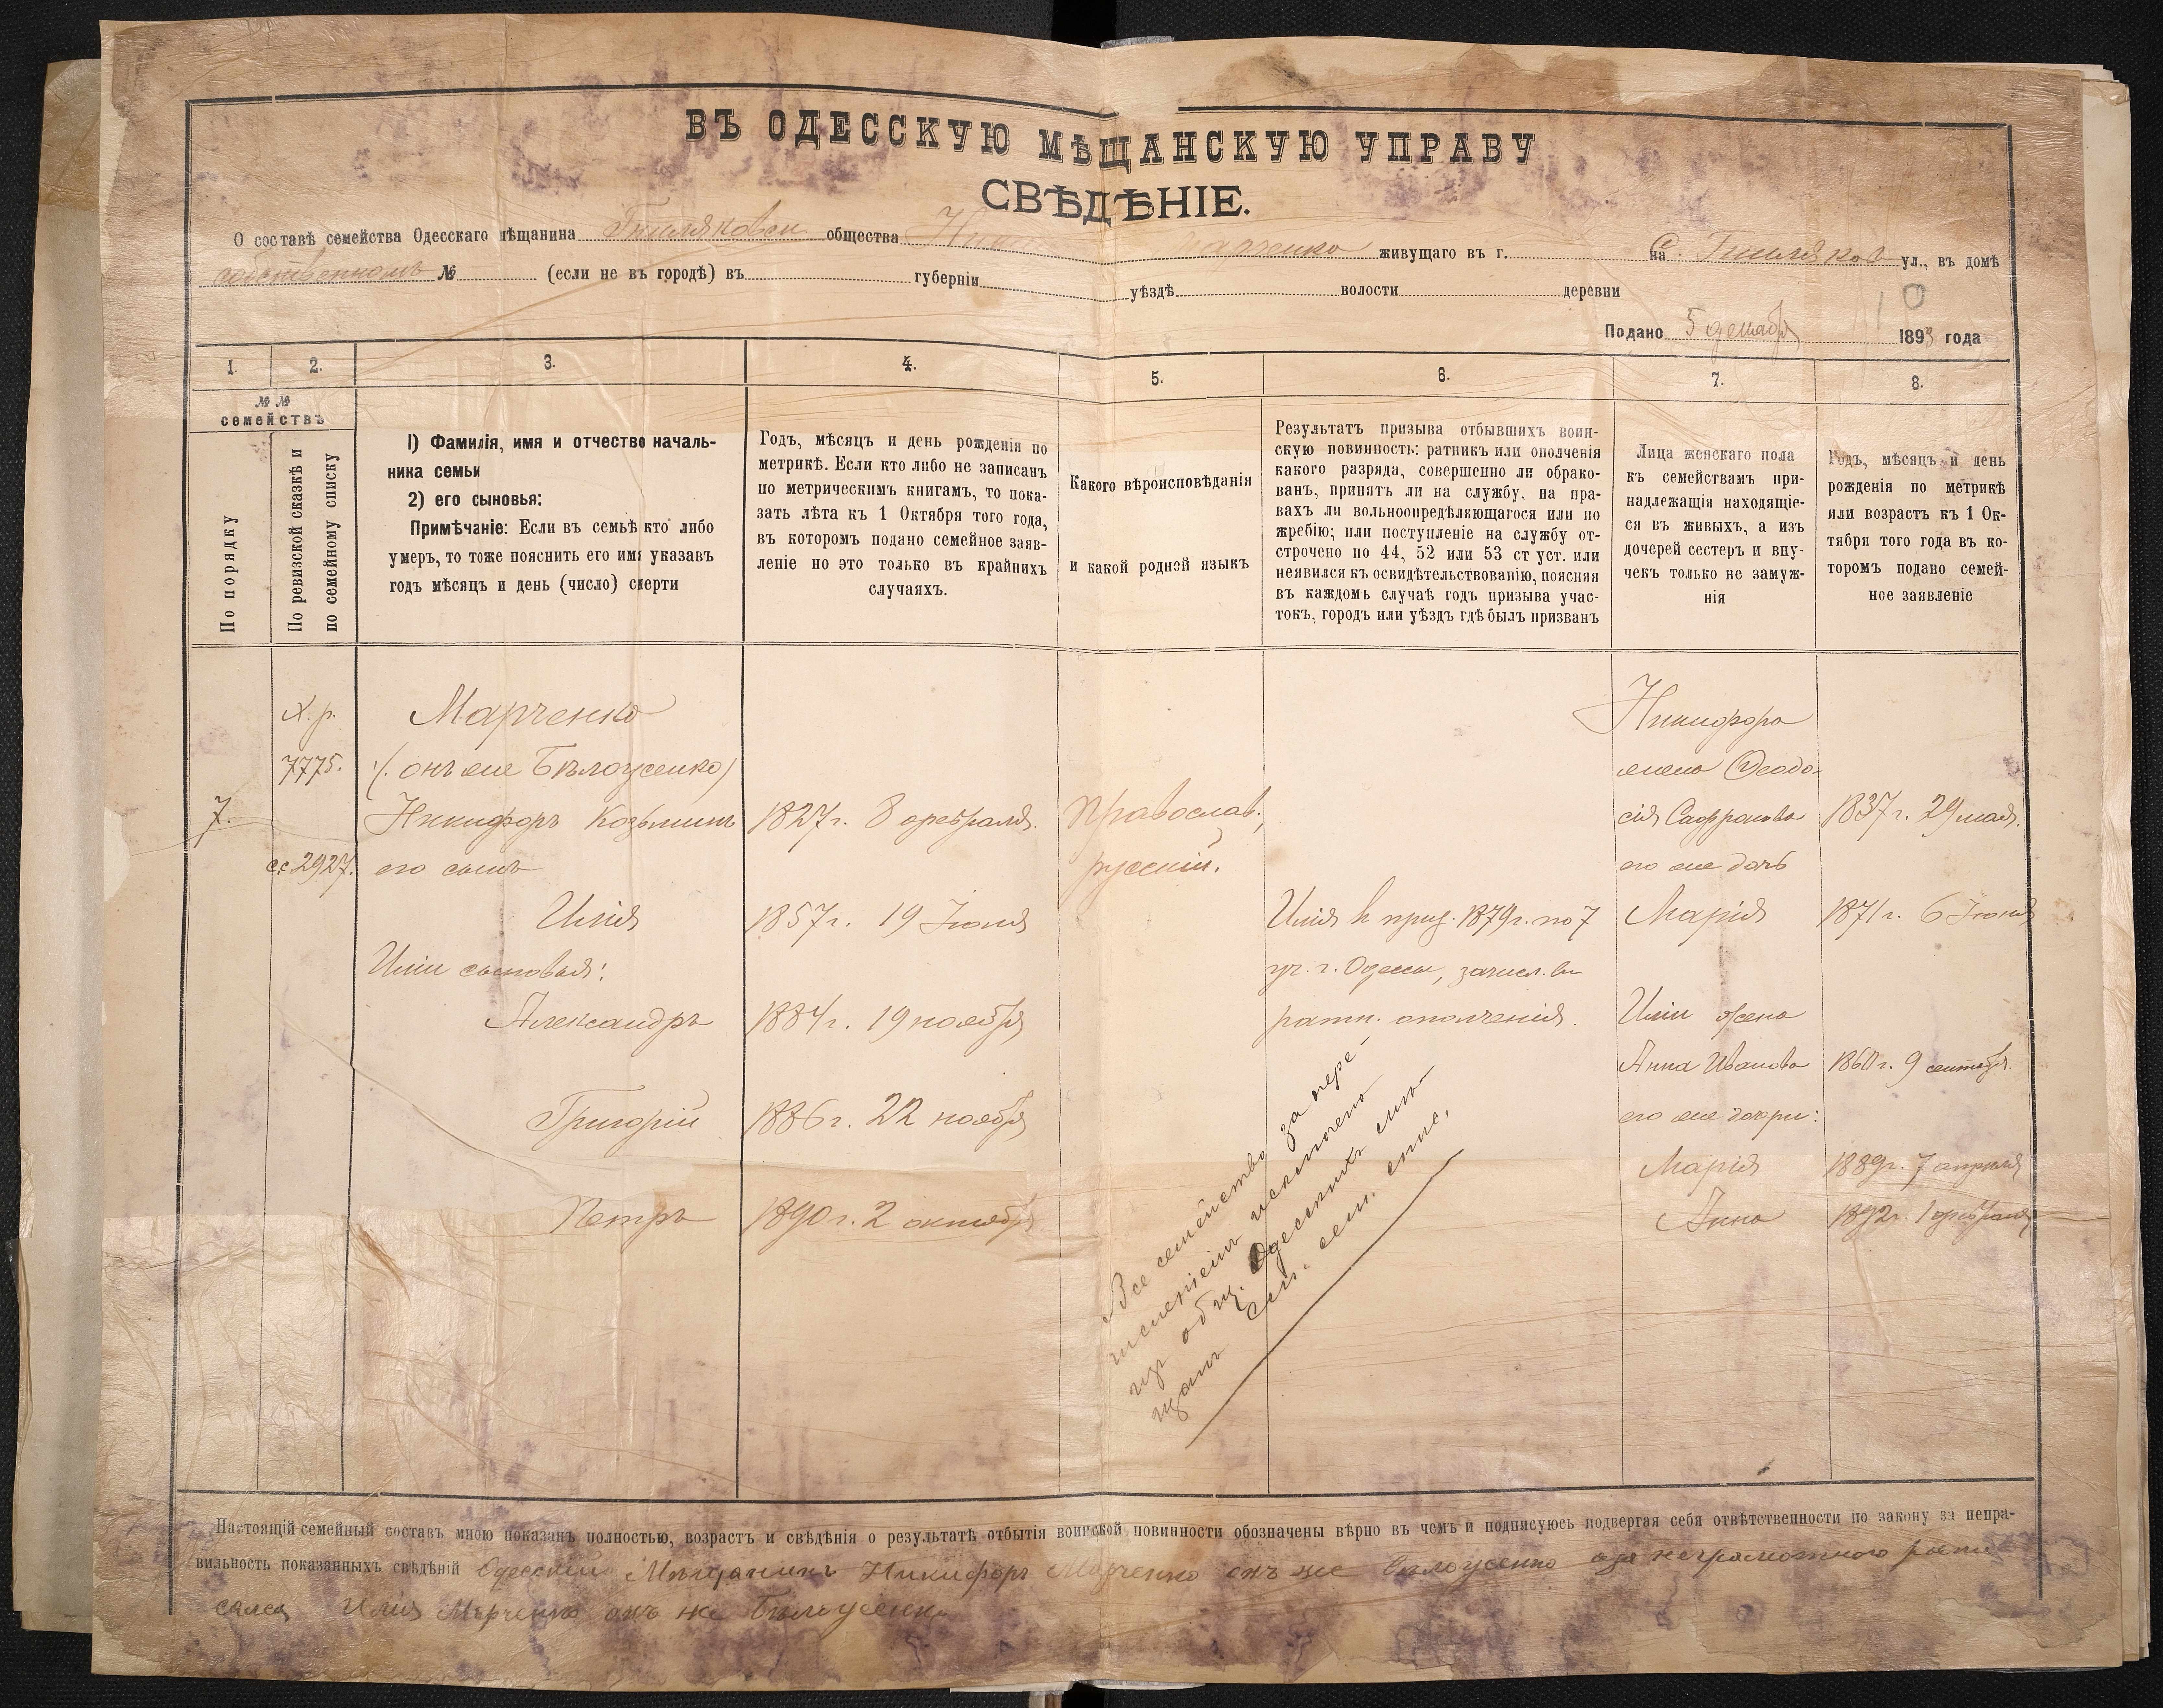 ВЪ ОДЕССКУЮ МѢЩАНСКУЮ УПРАВУ
СВѢДѢНІЕ.
О составѣ семейства Одесскаго мѣщанина Гниляковск общества Ник Марченко живущаго въ г. на С. Гниляков ул., въ домѣ
собственномъ № (если не въ городѣ) въ губерніи уѣздѣ волости деревни
10
Подано 5 декабр 1893 года
1. 2. 3. 4. 5. 6. 7. 8.
№ № семействъ
По порядку
По ревизской сказкѣ и
по семейному списку
1) Фамилія, имя и отчество началь-
ника семьи
2) его сыновья:
Примѣчаніе: Если въ семьѣ кто либо
умеръ, то тоже пояснить его имя указавъ
годъ мѣсяцъ и день (число) смерти
Годъ, мѣсяцъ и день рожденія по
метрикѣ. Если кто либо не записанъ
по метрическимъ книгамъ, то пока-
зать лѣта къ 1 Октября того года,
въ которомъ подано семейное заяв-
леніе но это только въ крайнихъ
случаяхъ.
Какого вѣроисповѣданія
и какой родной языкъ
Результатъ призыва отбывшихъ воин-
скую повинность: ратникъ или ополченія
какого разряда, совершенно ли обрако-
ванъ, принятъ ли на службу, на пра-
вахъ ли вольноопредѣляющагося или по
жребію; или поступленіе на службу от-
строчено по 44, 52 или 53 ст уст. или
неявился къ освидѣтельствованію, поясняя
въ каждомъ случаѣ годъ призыва учас-
токъ, городъ или уѣздъ гдѣ былъ призванъ
Лица женскаго пола
къ семействамъ при-
надлежащія находящіе-
ся въ живыхъ, а изъ
дочерей сестеръ и вну-
чекъ только не замуж-
нія
Годъ, мѣсяцъ и день
рожденія по метрикѣ
или возрастъ къ 1 Ок-
тября того года въ ко-
торомъ подано семей-
ное заявленіе
Х. р. Марченко Никифора
7775. (онъ же Бѣлоусенко) жена Феодо-
7. Никифоръ Козьминъ 1827 г. 8 февраля. Православ., сія Сафронова 1837 г. 29 мая.
с.с 2927. его сынъ русскій. его же дочь
Илія 1857 г. 19 Іюля Илія к приз. 1879 г. по 7 Марія 1871 г. 6 Іюня
Иліи сыновья: уч. г. Одессы, зачисл. въ
Александръ 1884 г. 19 ноября ратн. ополченія. Иліи жена
Анна Иванова 1860 г. 9 сентября.
Григорій 1886 г. 22 ноября его же дочери:
Марія 1889 г. 7 апреля
Петръ 1890 г. 2 октября Анна 1892 г. 1 февраля
Все семейство за пере-
численіемъ исключено
изъ общ. Одесскихъ мѣ-
щанъ сем. спис.
Настоящій семейный составъ мною показанъ полностью, возрастъ и свѣдѣнія о результатѣ отбытія воинской повинности обозначены вѣрно въ чемъ и подписуюсь подвергая себя отвѣтственности по закону за непра-
вильность показанныхъ свѣдѣній Одесскій Мѣщанинъ Никифоръ Марченко онъ же Бѣлоусенко а за неграмотного роспи
салса Илія Марченко онъ же Бѣлоусенко